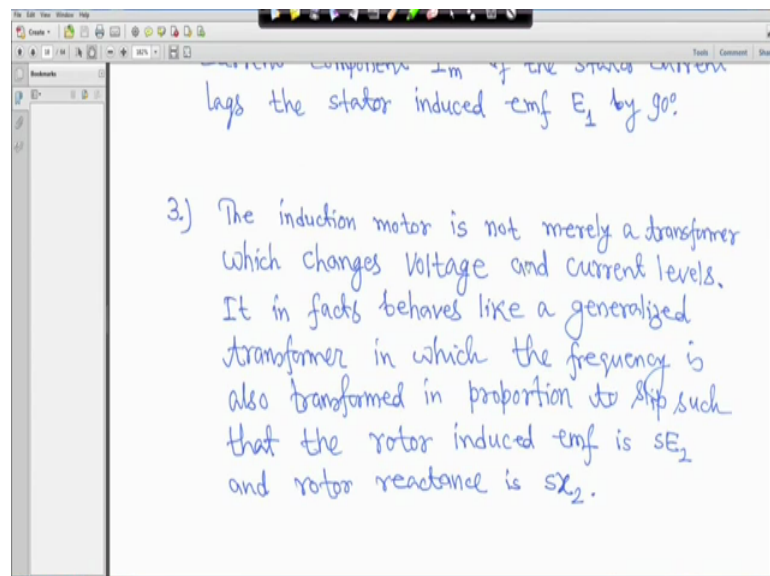 File Edit View Window Help
Create
18 / 114
182%
Tools Comment Share
Bookmarks
Current Component Im of the Stator Current
lags the stator induced emf E1 by 90°.
3.) The induction motor is not merely a transformer
which changes voltage and current levels.
It in facts behaves like a generalized
transformer in which the frequency is
also transformed in proportion to slip such
that the rotor induced emf is sE2
and rotor reactance is sx2.